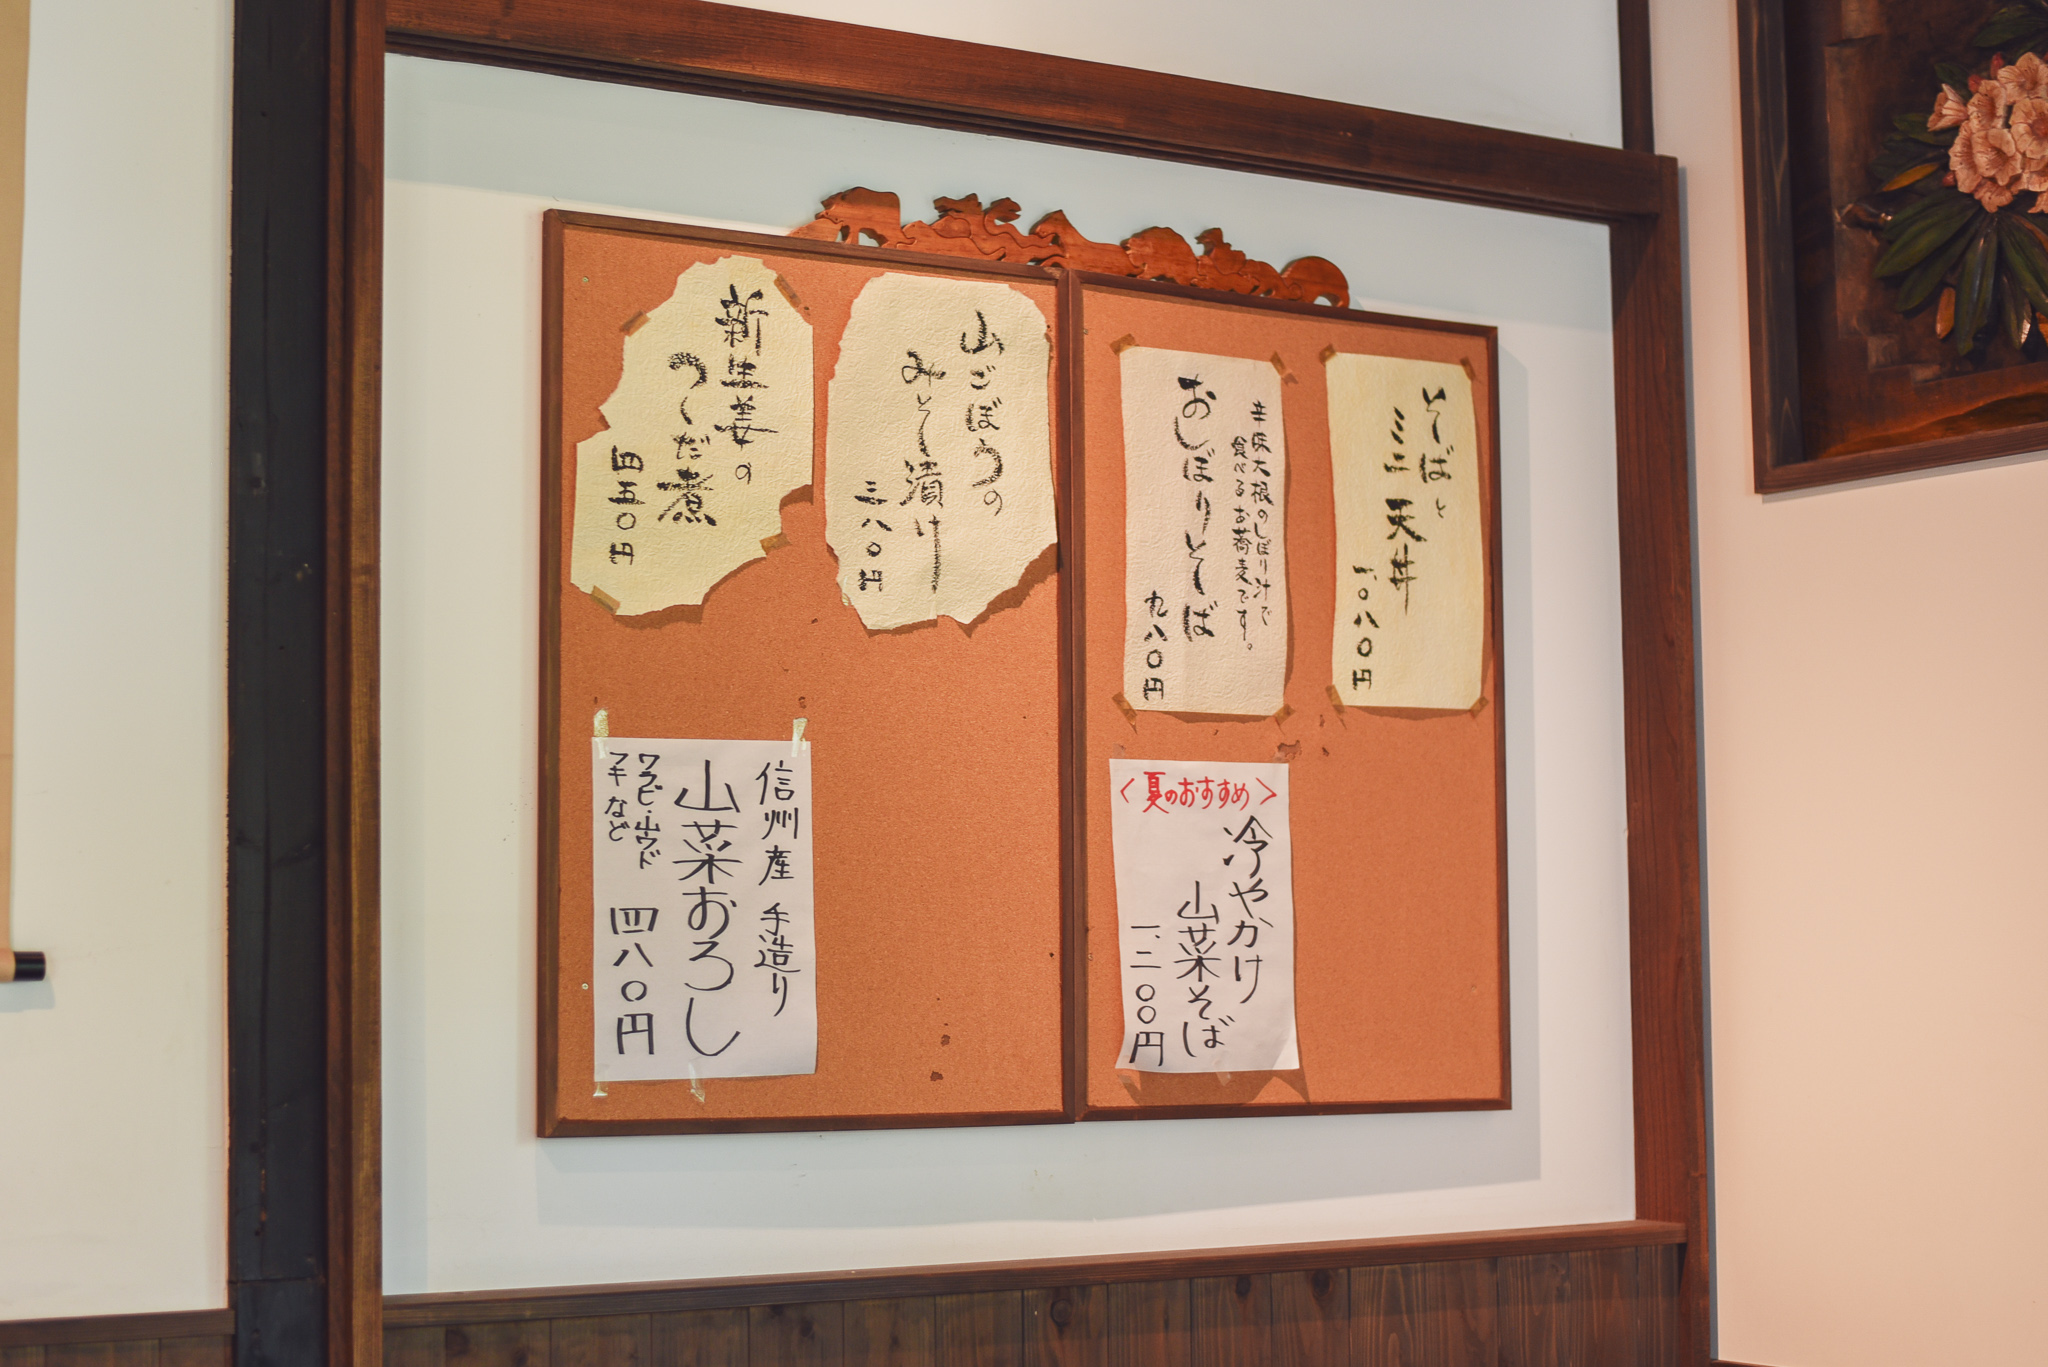 そばと
ミニ天丼
一、〇八〇円
辛味大根のしぼり汁で
食べるお蕎麦です。
おしぼりそば
九八〇円
山ごぼうの
みそ漬け
三八〇円
新生姜の
つくだ煮
四五〇円
〈夏のおすすめ〉
冷やかけ
山菜そば
一、二〇〇円
信州産 手造り
山菜おろし
ワラビ・山ウド
フキなど
四八〇円